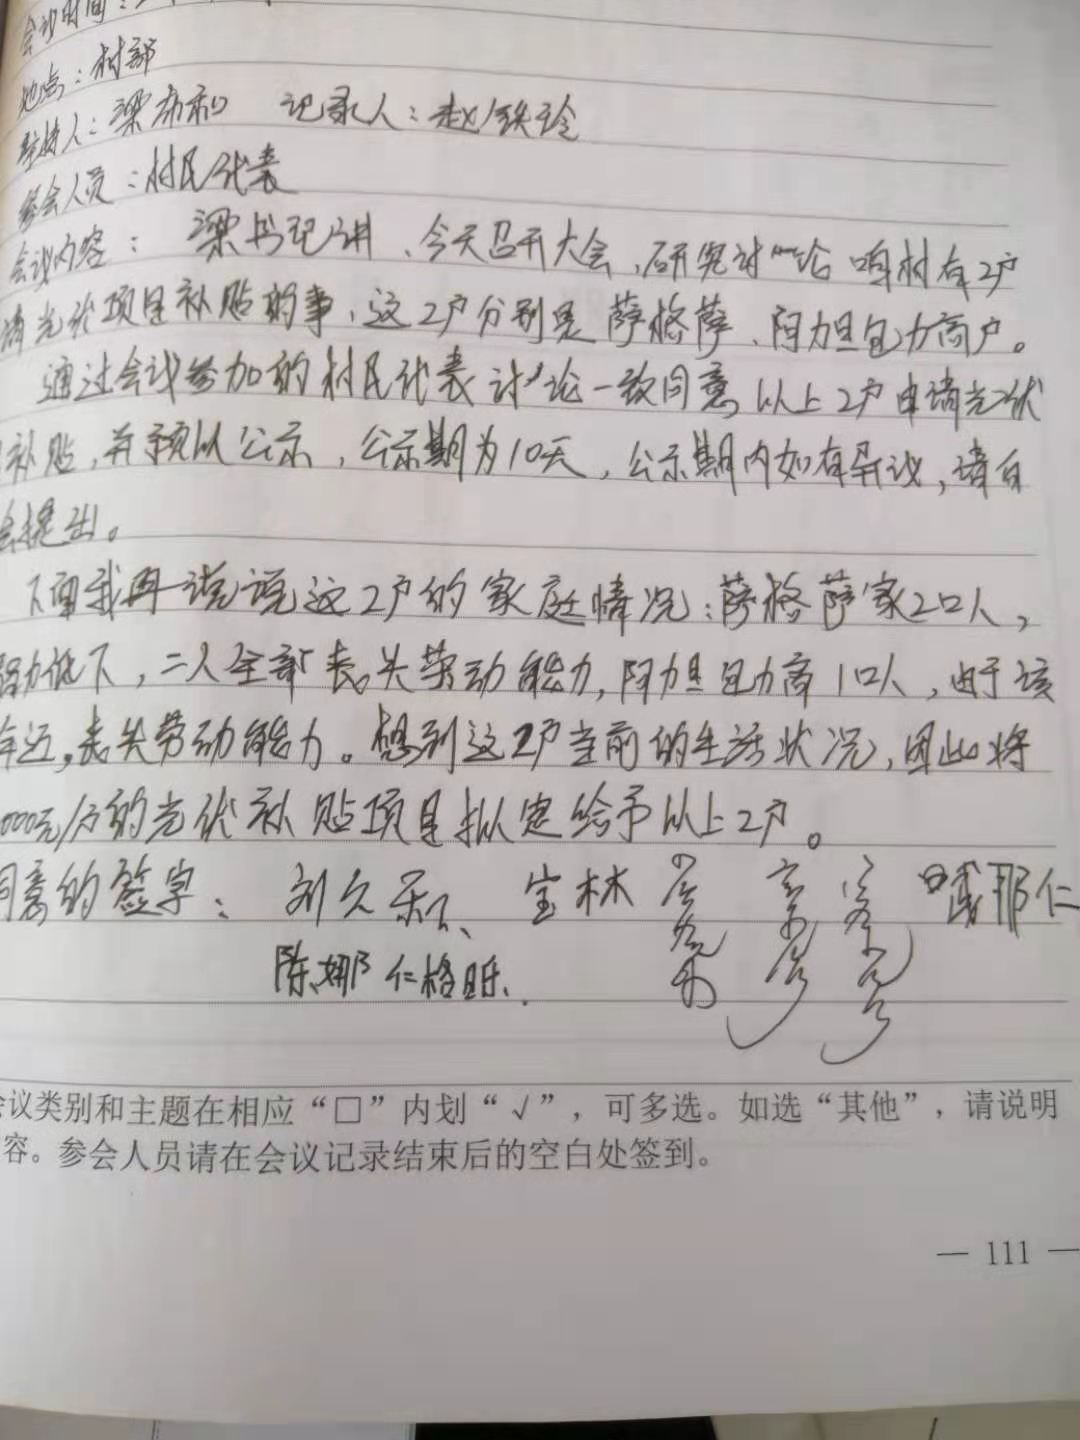 会议时间：
地点：村部
主持人：梁布和 记录人：赵铁玲
参会人员：村民代表
会议内容： 梁书记讲、今天召开大会，研究讨论咱村有2户
请光伏项目补贴的事，这2户分别是萨格萨、阿力旦包力高户。
通过会议参加的村民代表讨论一致同意以上2户申请光伏
补贴，并予以公示，公示期为10天，公示期内如有异议，请自
会提出。
下面我再说说这2户的家庭情况：萨格萨家2口人，
智力低下，二人全部丧失劳动能力，阿力旦包力高1口人，由于该
年迈，丧失劳动能力。想到这2户当前的生活状况，因此将
000元/户的光伏补贴项目拟定给予以上2户。
同意的签字： 刘久 宝林 那仁
陈娜仁格日乐、
会议类别和主题在相应“□”内划“√”，可多选。如选“其他”，请说明
容。参会人员请在会议记录结束后的空白处签到。
— 111 —